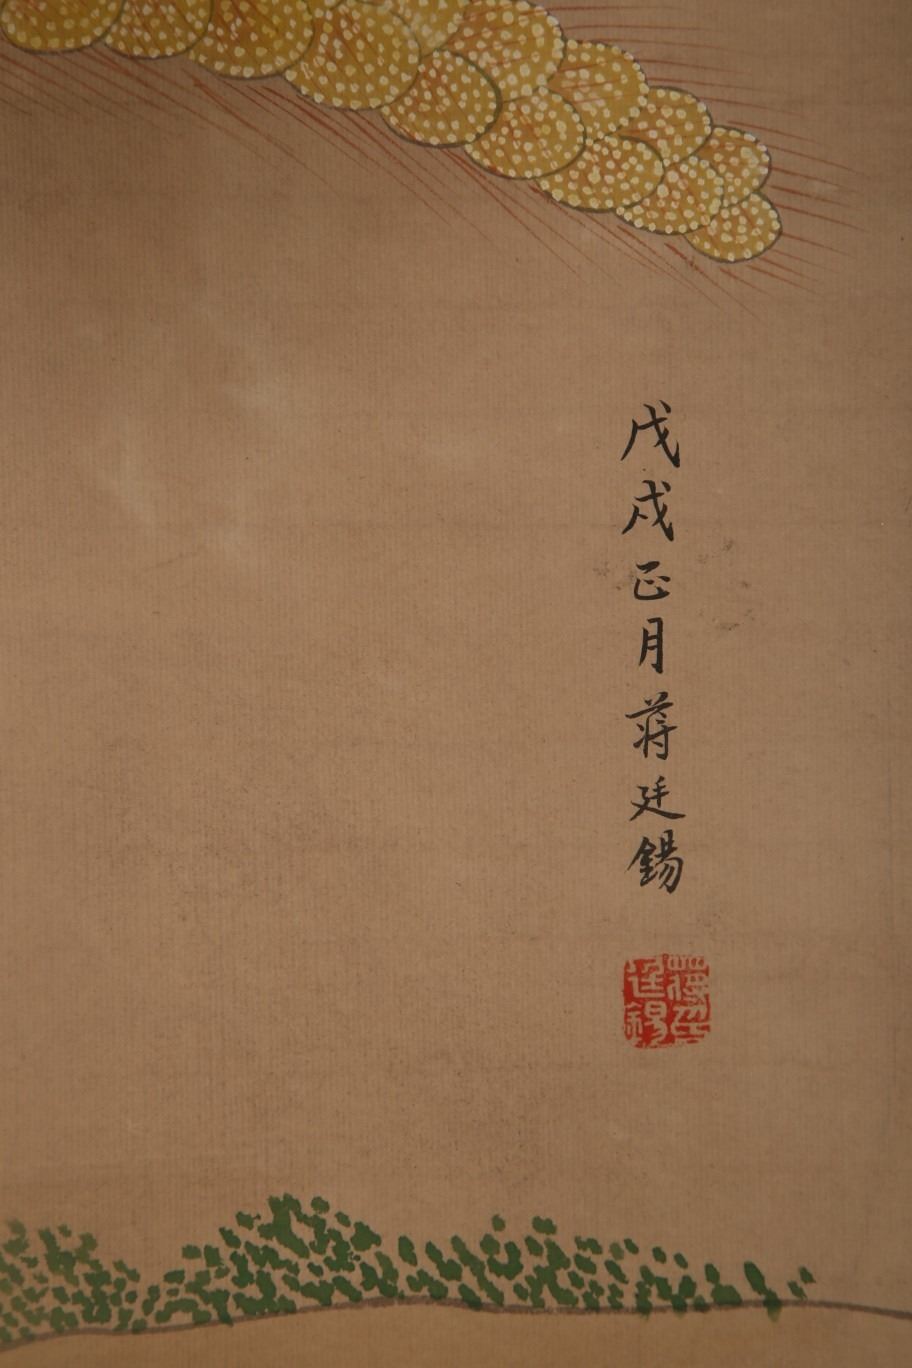 戊戌正月蒋廷錫
蔣廷錫印